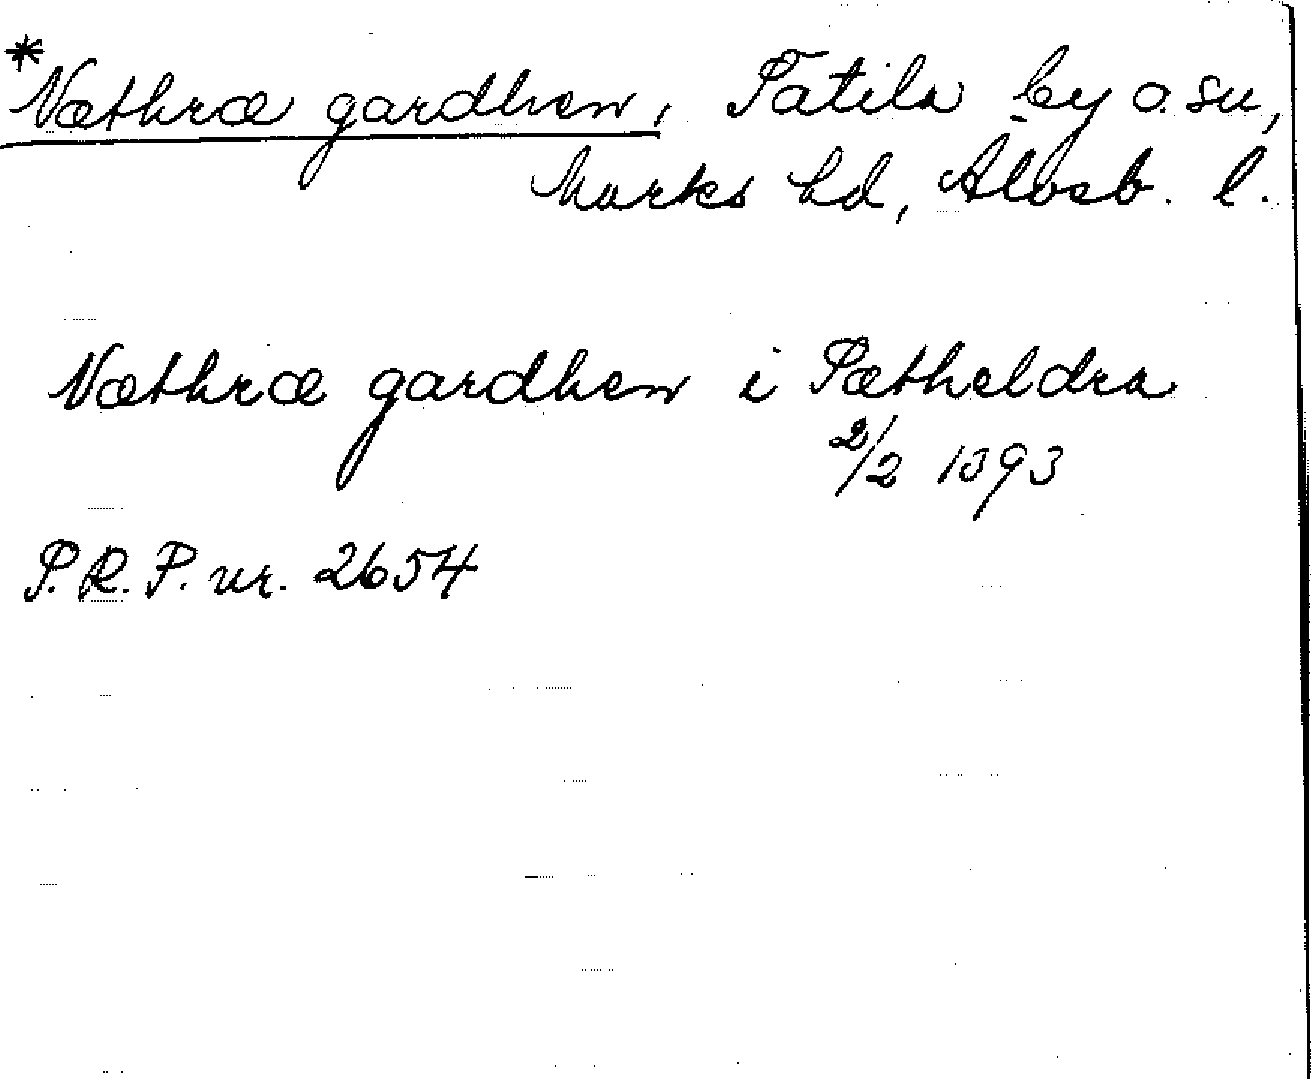 *Næthræ gardhen, Fätila by o. sn,
Marks hd, Älvsb. l.
Næthræ gardhen i Fætheldra
2/2 1393
P.R.P. nr. 2654